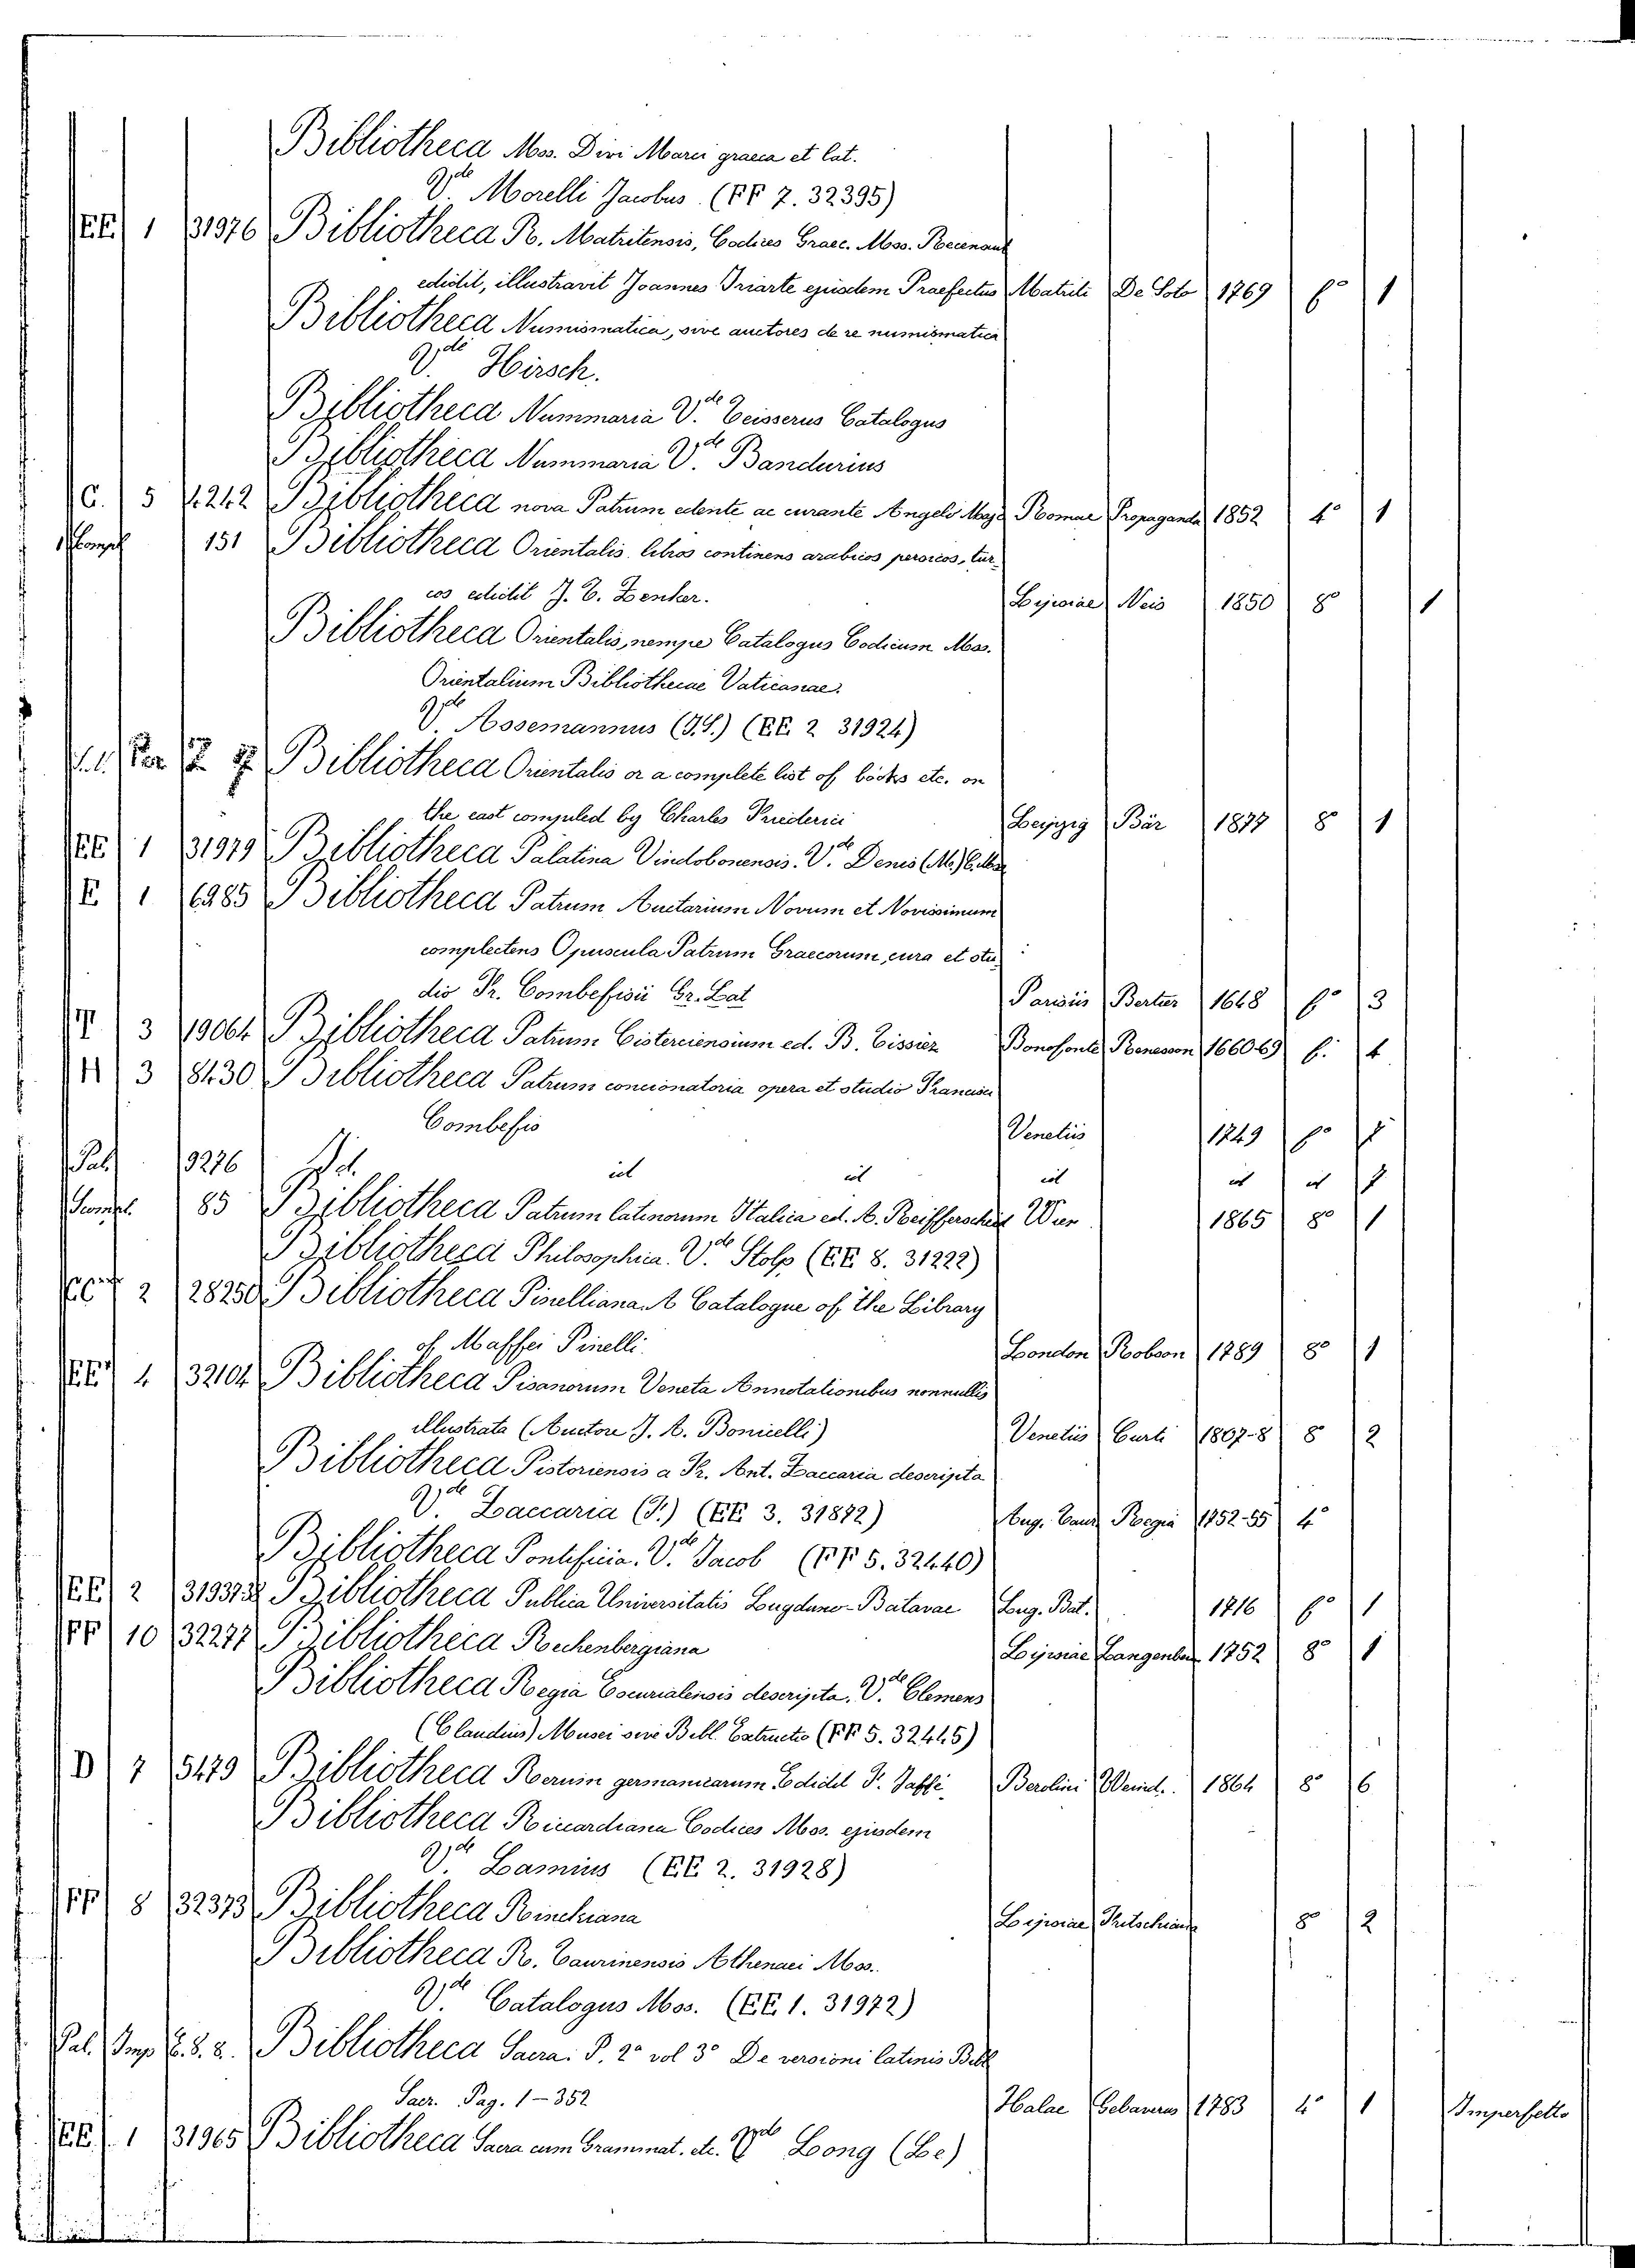 Bibliotheca Mss. Divi Marci graeca et lat.
V.de Morelli Jacobus (FF 7. 32395)
EE 1 31976 Bibliotheca R. Matritensis, Codices Graec. Mss. Recensuit
edidit, illustravit Joannes Iriarte ejusdem Praefectus Matriti De Soto 1769 f° 1
Bibliotheca Numismatica, sive auctores de re numismatica
V.de Hirsch.
Bibliotheca Nummaria V.de Ceisserus Catalogus
Bibliotheca Nummaria V.de Bandurius
C. 5 4242 Bibliotheca nova Patrum edente ac curante Angelo Majo Romae Propaganda 1852 4° 1
151 Bibliotheca Orientalis libros continens arabicos persicos, tur-
cos edidit J. E. Zenker. Lipsiae Neis 1850 8° 1
Bibliotheca Orientalis, nempe Catalogus Codicum Mss.
Orientalium Bibliothecae Vaticanae.
V.de Assemannus (J.S.) (EE 2 31924)
Bibliotheca Orientalis or a complete list of books etc. on
the east compiled by Charles Friederici Leipzig Bär 1877 8° 1
EE 1 31979 Bibliotheca Palatina Vindobonensis. V.de Denis (M.)
E 1 6985 Bibliotheca Patrum Auctarium Novum et Novissimum
complectens Opuscula Patrum Graecorum, cura et stu-
dio Fr. Combefisii Gr. Lat Parisiis Bertier 1648 f° 3
T 3 19064 Bibliotheca Patrum Cisterciensium ed. B. Tissier Bonofonte Renesson 1660-69 f. 4
H 3 8430 Bibliotheca Patrum concionatoria opera et studio Francisci
Combefis Venetiis 1749 f°
Pal 19276 Id. id id id id id
85 Bibliotheca Patrum latinorum Italica ed. A. Reifferscheid Wien 1865 8° 1
Bibliotheca Philosophica. V.de Stolp (EE 8. 31222)
2 28250 Bibliotheca Pinelliana. A Catalogue of the Library
of Maffei Pinelli. London Robson 1789 8° 1
EE 4 32104 Bibliotheca Pisanorum Veneta Annotationibus nonnullis
illustrata (Auctore J. A. Bonicelli) Venetiis Curti 1807-8 8 2
Bibliotheca Pistoriensis a Fr. Ant. Zaccaria descripta
V.de Zaccaria (F.) (EE 3. 31872) Aug. Taur. Regia 1752-55 4°
Bibliotheca Pontificia. V.de Jacob (FF 5. 32440)
EE 2 Bibliotheca Publica Universitatis Lugduno-Batavae Lug. Bat. 1716 f° 1
FF 10 32277 Bibliotheca Rechenbergiana Lipsiae 1752 8° 1
Bibliotheca Regia Escurialensis descripta. V.de Clemens
(Claudius) Musei sive Bibl. Extructio (FF 5. 32445)
D 7 5479 Bibliotheca Rerum germanicarum Edidit P. Jaffé Berolini Weind. 1864 8° 6
Bibliotheca Riccardiana Codices Mss. ejusdem
V.de Lamius (EE 2. 31928)
FF 8 32373 Bibliotheca Rinckiana Lipsiae 8° 2
Bibliotheca R. Taurinensis Athenaei Mss.
V.de Catalogus Mss. (EE 1. 31972)
Pal. Imp E. 8. 2. Bibliotheca Sacra. P. 2° vol 3° De versioni latinis Bibl
Sacr. Pag. 1-352 Halae Gebaverus 1783 4° 1 Imperfetto
EE 1 31965 Bibliotheca Sacra cum Grammat. etc. V.de Long (Le)